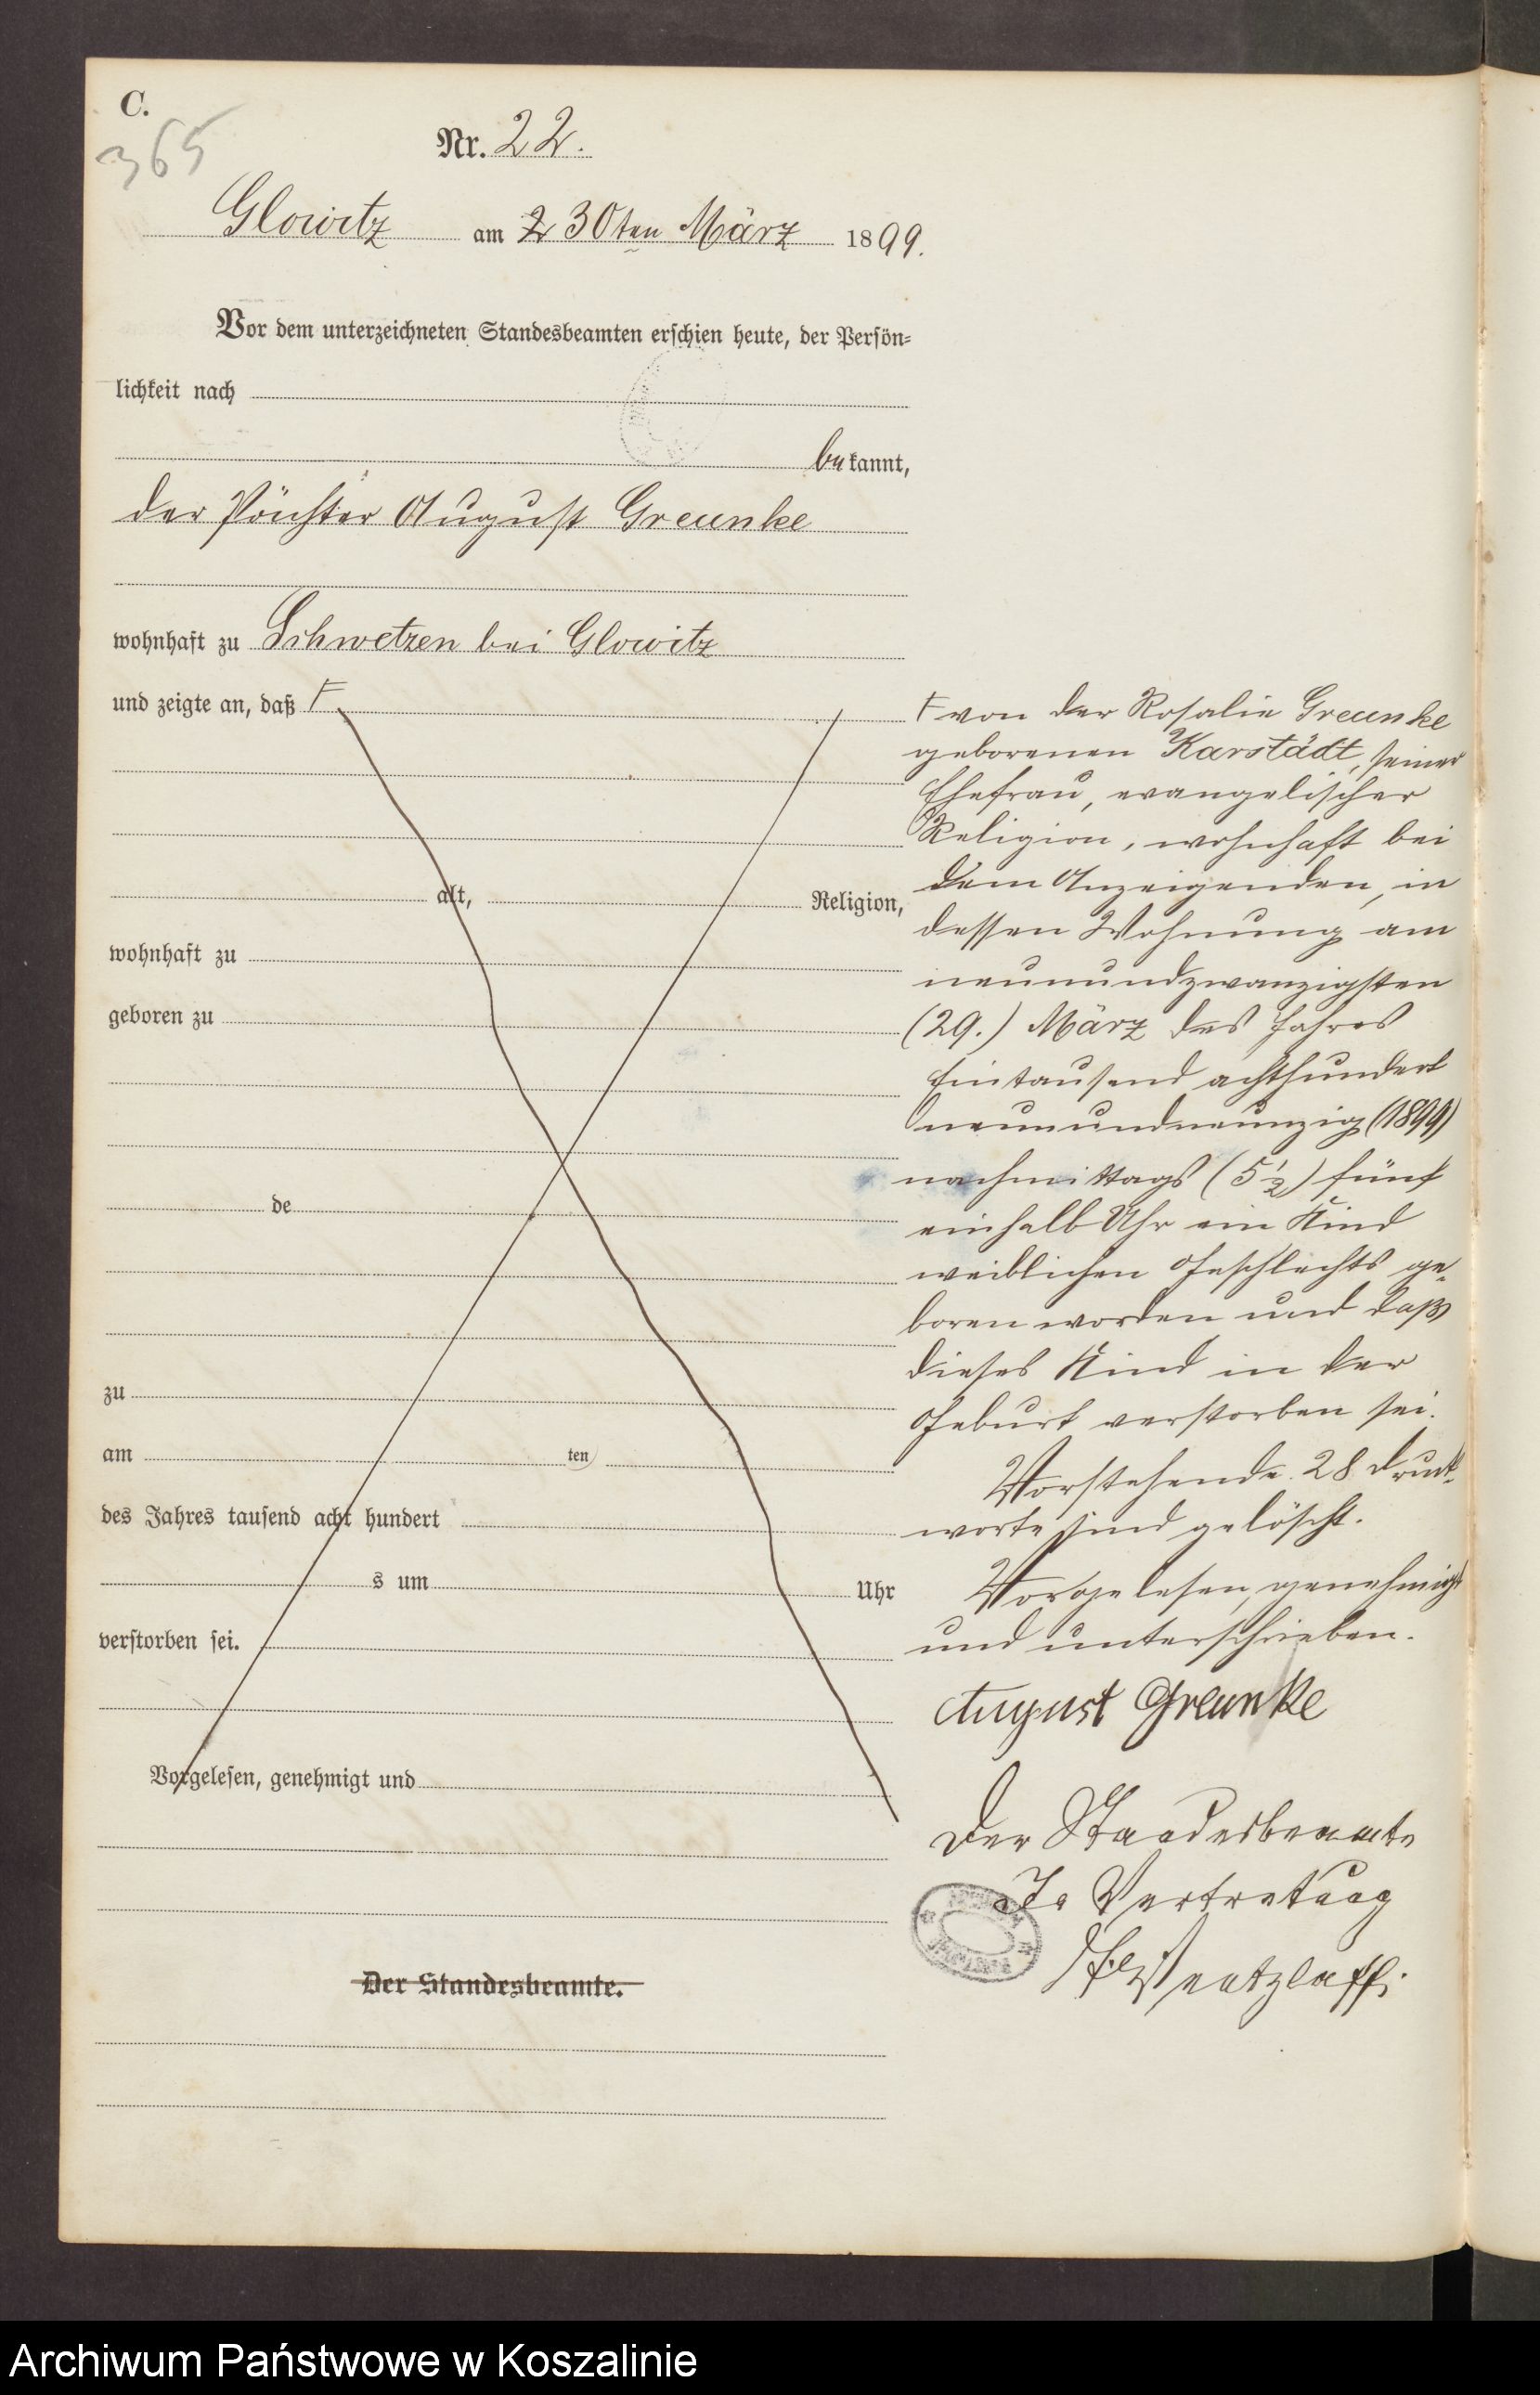 C.
365
Nr. 22.
Glowitz am 2 30ten März 1899.
Vor dem unterzeichneten Standesbeamten erschien heute, der Persön=
lichkeit nach
bekannt,
der Pächter August Greunke
wohnhaft zu Schwetzen bei Glowitz
und zeigte an, daß F
alt, Religion,
wohnhaft zu
geboren zu
de
zu
am ten
des Jahres tausend acht hundert
s um Uhr
verstorben sei.
Vorgelesen, genehmigt und
Der Standesbeamte.
F von der Rosalie Greunke
geborenen Karstädt, seiner
Ehefrau, evangelischer
Religion, wohnhaft bei
dem Anzeigenden, in
dessen Wohnung am
neunundzwanzigsten
(29.) März des Jahres
Eintausend achthundert
neunundneunzig (1899)
nachmittags (5½) fünf
einhalb Uhr ein Kind
weiblichen Geschlechts ge=
boren worden und daß
dieses Kind in der
Geburt verstorben sei.
Vorstehende 28 Druck=
worte sind gelöscht.
Vorgelesen, genehmigt
und unterschrieben.
August Greunke
Der Standesbeamte
In Vertretung
Wentzlaff.
Archiwum Państwowe w Koszalinie